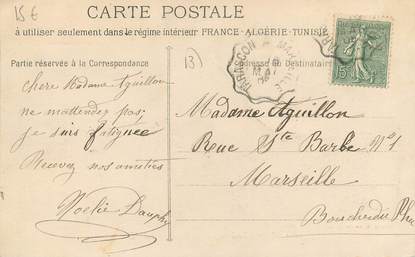 15€
CARTE POSTALE
à utiliser seulement dans le régime intérieur FRANCE-ALGÉRIE-TUNISIE
Partie réservée à la Correspondance
Adresse du Destinataire
13)
TARASCON
MARSEILLE
15
chere Madame Aguillon
ne mattendez pas;
je suis fatiguée
Recevez nos amities
Noelie Dauphin
Madame Aguillon
Rue Ste Barbe N°1
Marseille
Bouches du Rhu